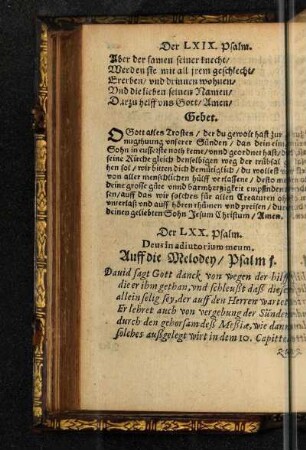 Der LXIX. Psalm.
Aber der samen seiner knecht/
Werden sie mit all jrem geschlecht/
Ererben/ vnd drinnen wohnen/
Vnd die lieben seinen Namen/
Darzu helff vns Gott/ Amen/
Gebet.
O Gott alles Trostes/ der du gewolt hast zur
vnserer Sünden/ das dein
Sohn in eusserste noth keme/ vnnd geordnet hast/
seine Kirche gleich denselbigen weg der trübsal
hen sol/ wir bitten dich demütiglich/ du wollest
von aller menschlichen hülff verlassen/ desto
deine grosse güte vnnd barmhertzigkeit empfinden
sen/ auff das wir solches für allen Creaturen
vnerlasz vnd auff hören rhümen vnd preisen/
deinen geliebten Sohn Jesum Christum/ Amen.
Der LXX. Psalm.
Deus in adiutorium meum.
Auff die Melodey/ Psalm
Dauid sagt Gott danck von wegen der
die er ihm gethan, vnd schleußt daß
allein selig sey, der auff den Herren
Er lehret auch von vergebung der
durch den gehorsam deß Messiæ, wie dann
solches außgelegt wirt in dem 10.